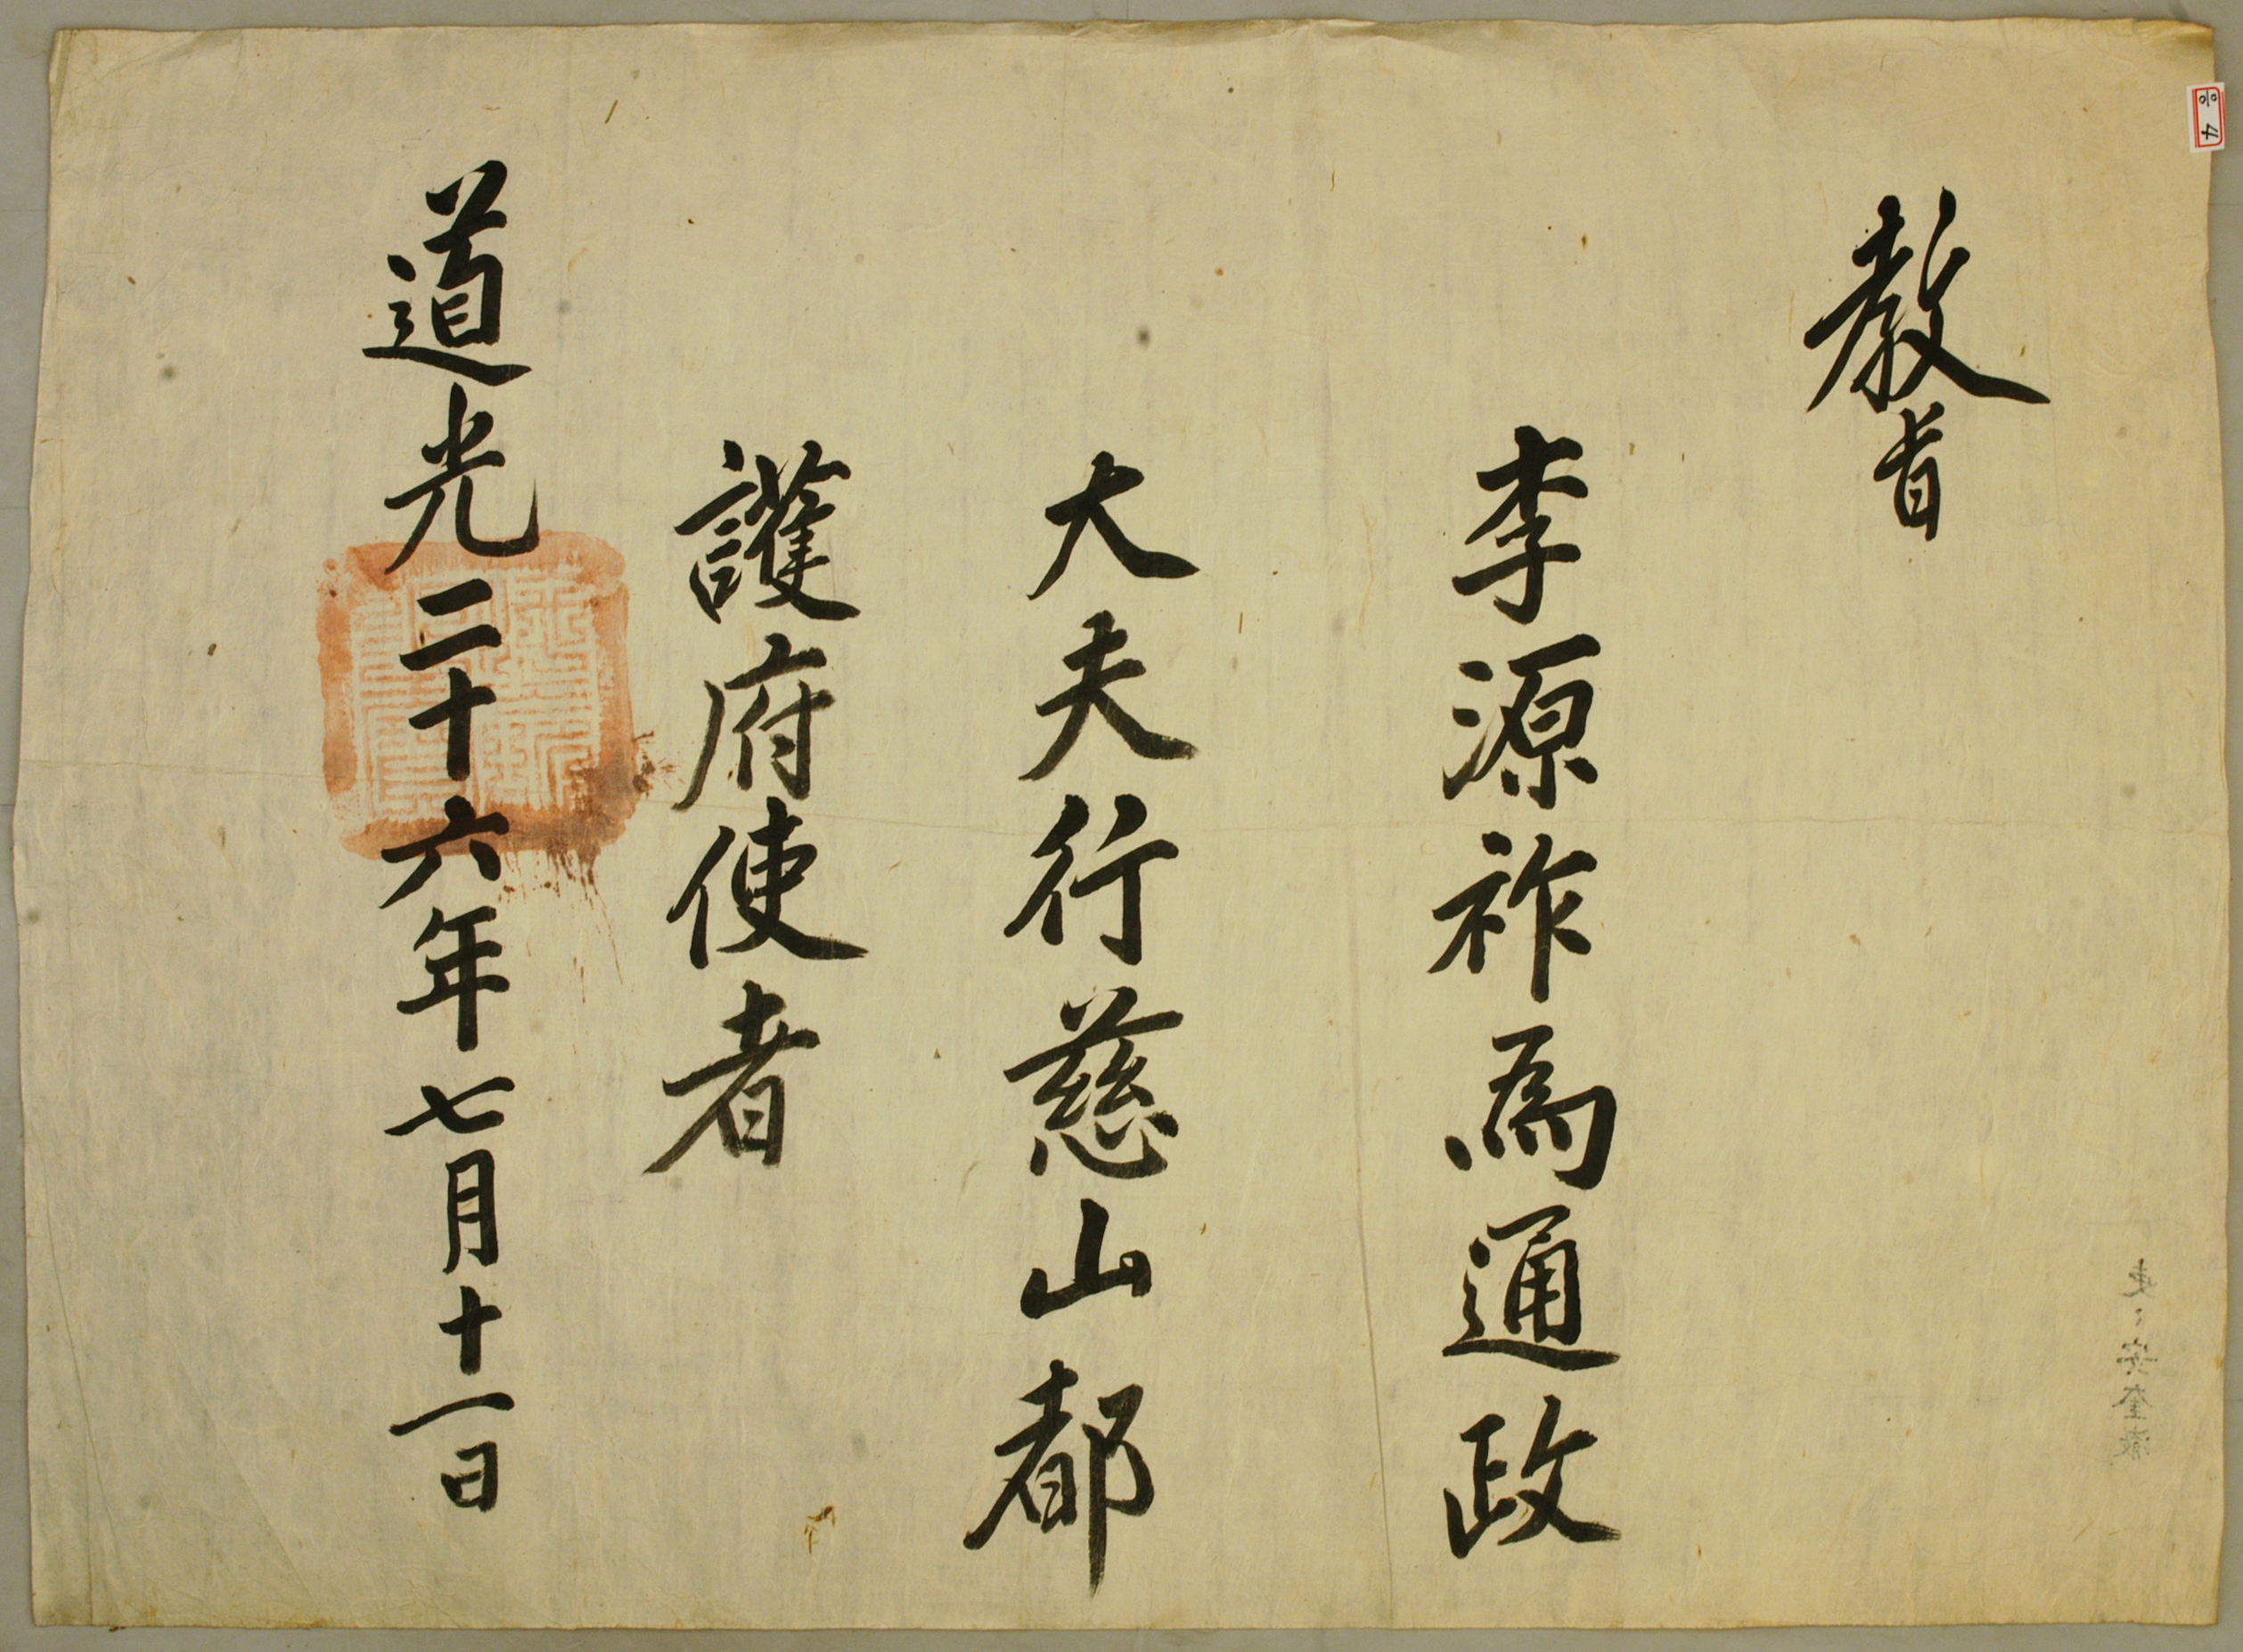 教旨
李源祚爲通政
大夫行慈山都
護府使者
道光二十六年七月十一日
吏吏安奎瀓
4